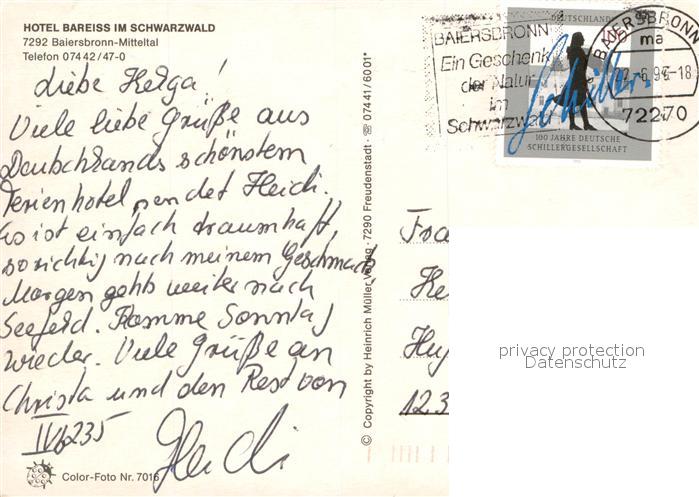 HOTEL BAREISS IM SCHWARZWALD
7292 Baiersbronn-Mitteltal
Telefon 07442/47-0
Liebe Helga!
Viele liebe Grüße aus
Deutschlands schönstem
Ferienhotel sendet Heidi.
Es ist einfach traumhaft,
so richtig nach meinem Geschmack
Morgen gehts weiter nach
Seefeld. Komme Sonntag
wieder. Viele Grüße an
Christa und den Rest von
IVb235
Heidi
Color-Foto Nr. 7016
© Copyright by Heinrich Müller Verlag · 7290 Freudenstadt · ☏ 07441/6001*
BAIERSBRONN
Ein Geschenk
der Natur
im
Schwarzwald
DEUTSCHLAND
Schiller
100 JAHRE DEUTSCHE
SCHILLERGESELLSCHAFT
BAIERSBRONN
ma
-18
72270
Fra
He
Huf
123
privacy protection
Datenschutz